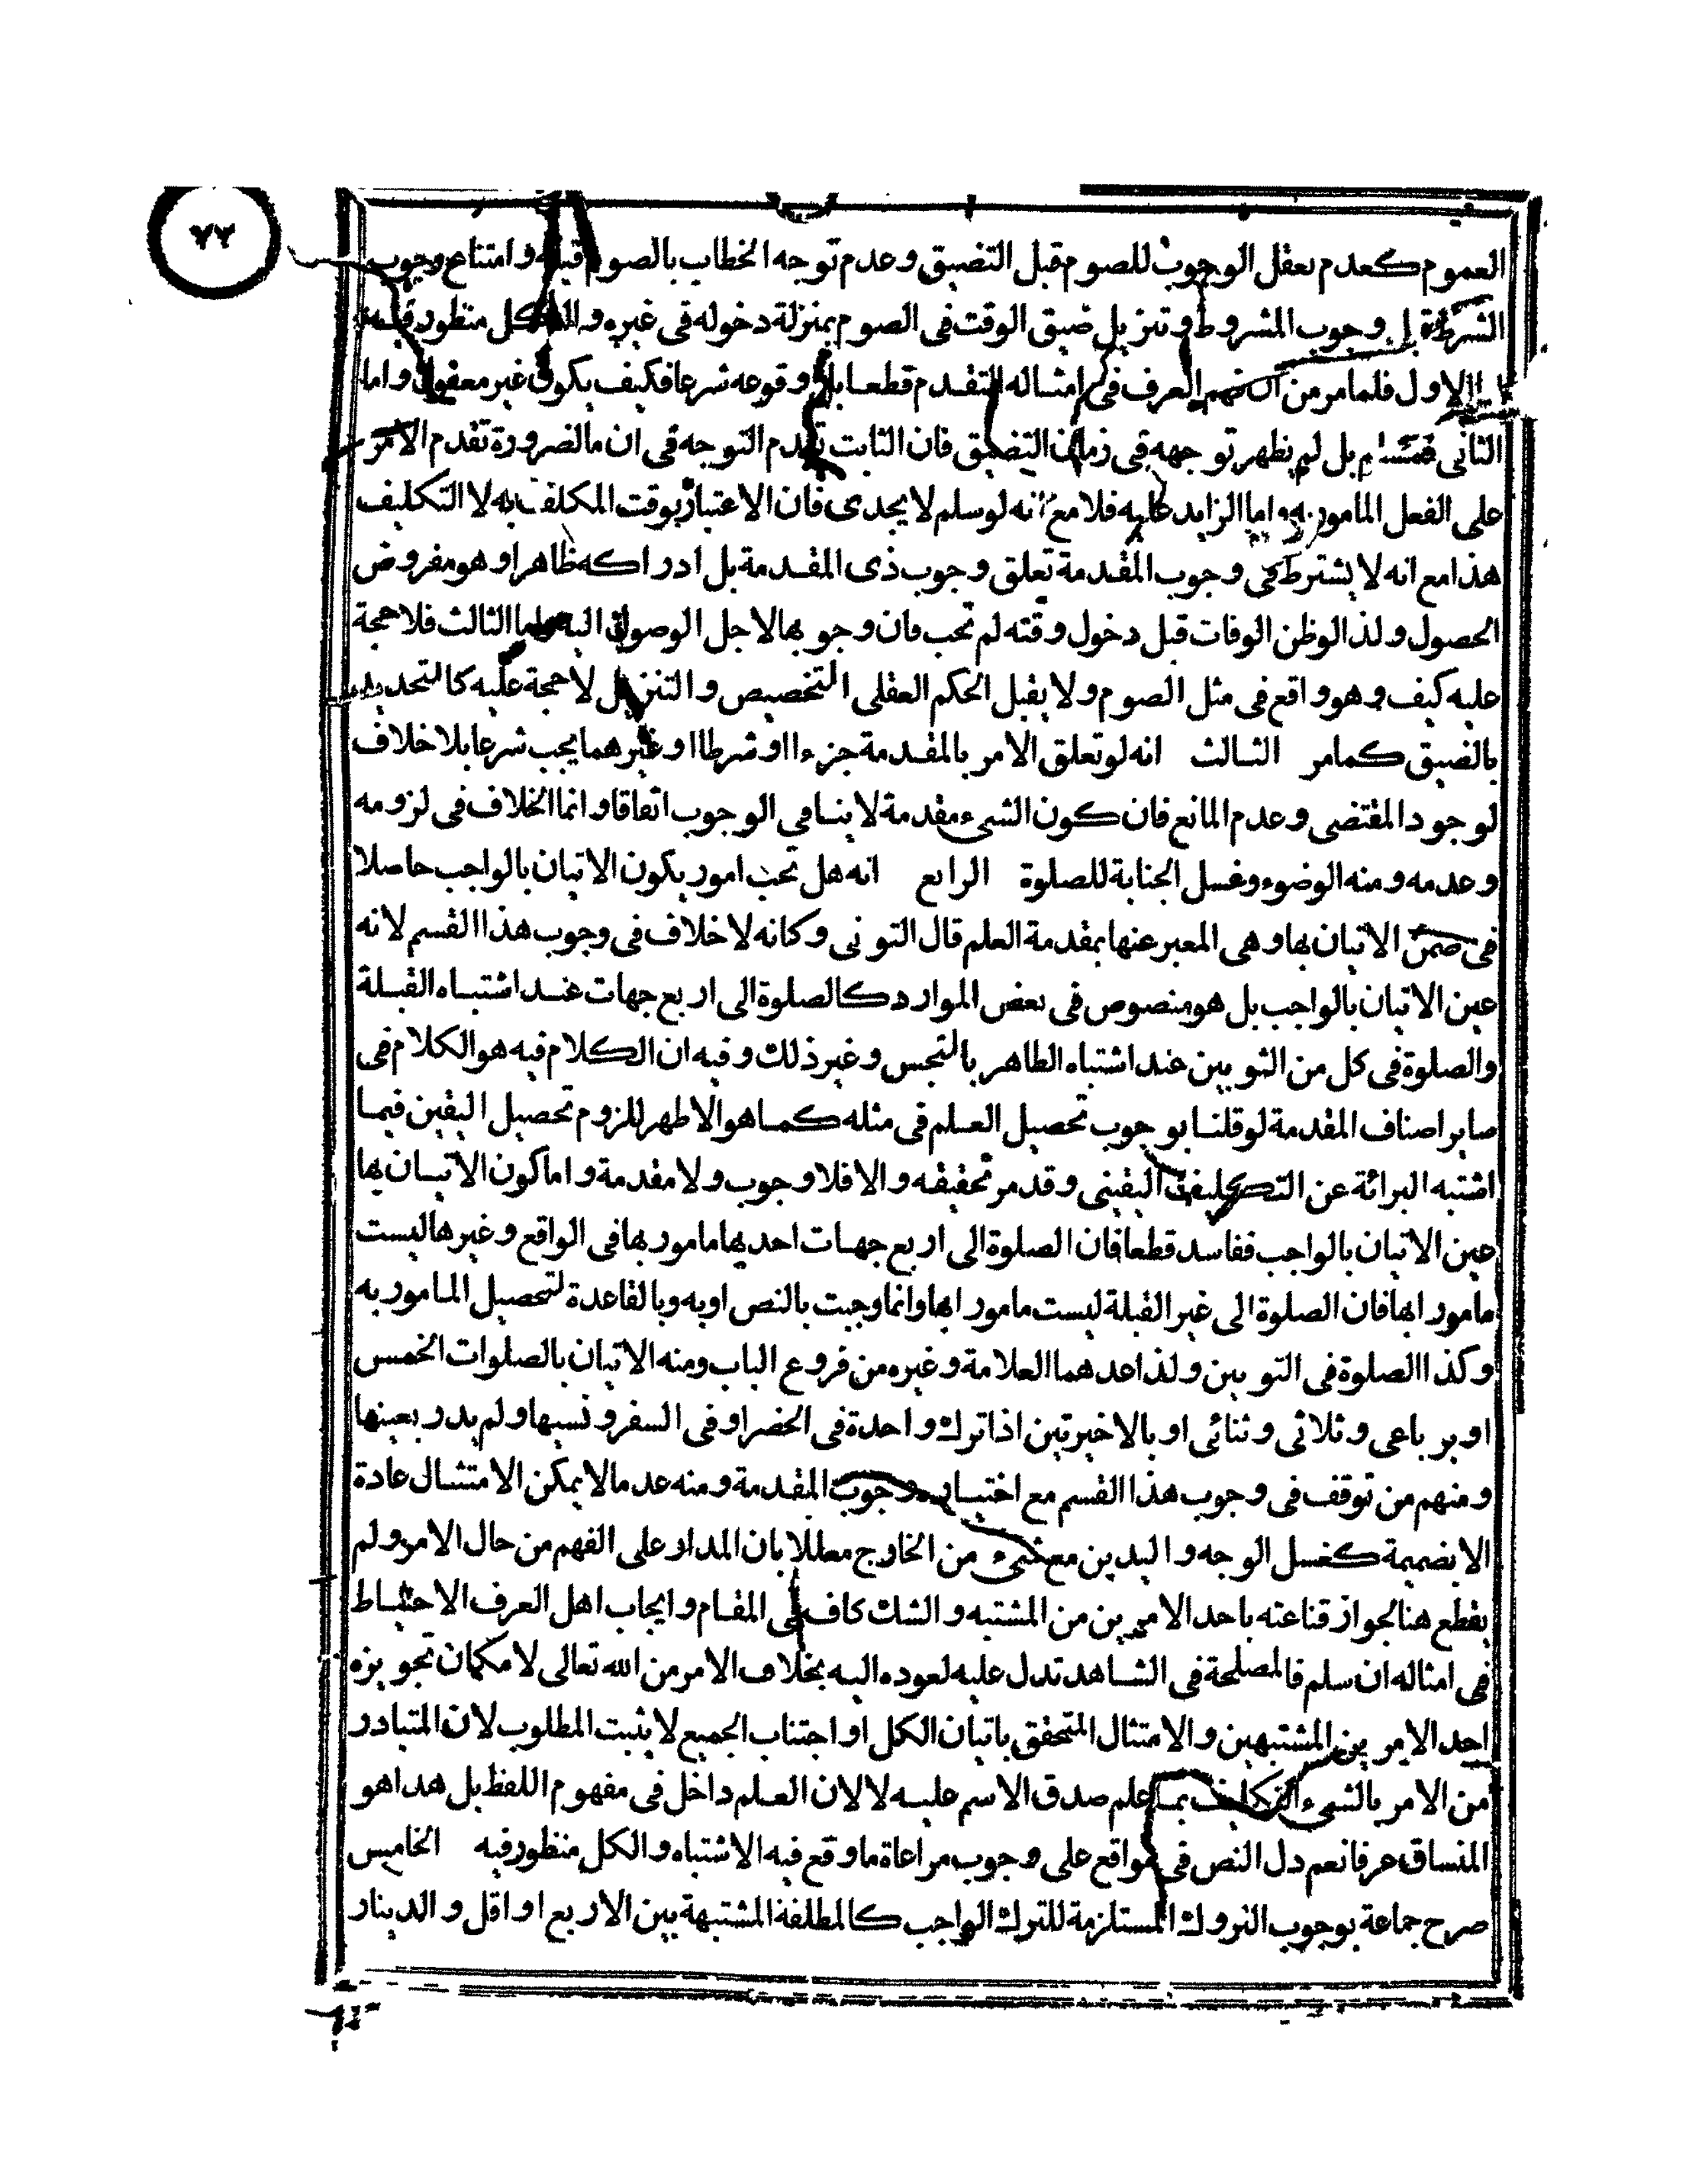 ٧٢
العموم كعدم تعقل الوجوب للصوم قبل التضيق وعدم توجه الخطاب بالصوم قبله وامتناع وجوب
الشرط قبل وجوب المشروط وتنزيل ضيق الوقت فى الصوم بمنزلة دخوله فى غيره والكل منظور فيه
الاول فلما مر من ان فهم العرف فى امثاله التقدم قطعا بل وقوعه شرعا فكيف يكون غير معقول واما
الثانى فمسلم بل لم يظهر توجهه فى زمان التضيق فان الثابت تقدم التوجه فى ان ما لضرورة تقدم الامر
على الفعل المامور به واما الزايد عليه فلا مع انه لو سلم لا يجدى فان الاعتبار بوقت المكلف به لا التكليف
هذا مع انه لا يشترط فى وجوب المقدمة تعلق وجوب ذى المقدمة بل ادراكه ظاهرا وهو مفروض
الحصول ولذا لو ظن الوفات قبل دخول وقته لم تجب فان وجوبها لاجل الوصول اليه واما الثالث فلا حجة
عليه كيف وهو واقع فى مثل الصوم ولا يقبل الحكم العقلى التخصيص والتنزيل لا حجة عليه كالتحديد
بالضيق كما مر الثالث انه لو تعلق الامر بالمقدمة جزءا او شرطا او غيرهما يجب شرعا بلا خلاف
لوجود المقتضى وعدم المانع فان كون الشىء مقدمة لا ينافى الوجوب اتفاقا وانما الخلاف فى لزومه
وعدمه ومنه الوضوء وغسل الجنابة للصلوة الرابع انه هل تجب امور يكون الاتيان بالواجب حاصلا
فى ضمن الاتيان بها وهى المعبر عنها بمقدمة العلم قال التونى وكانه لا خلاف فى وجوب هذا القسم لانه
عين الاتيان بالواجب بل هو منصوص فى بعض الموارد كالصلوة الى اربع جهات عند اشتباه القبلة
والصلوة فى كل من الثوبين عند اشتباه الطاهر بالنجس وغير ذلك وفيه ان الكلام فيه هو الكلام فى
ساير اصناف المقدمة لو قلنا بوجوب تحصيل العلم فى مثله كما هو الاظهر للزوم تحصيل اليقين فيما
اشتبه البرائة عن التكليف اليقينى وقد مر تحقيقه والا فلا وجوب ولا مقدمة واما كون الاتيان بها
عين الاتيان بالواجب ففاسد قطعا فان الصلوة الى اربع جهات احديها مامور بها فى الواقع وغيرها ليست
مامورا بها فان الصلوة الى غير القبلة ليست مامورا بها وانما وجبت بالنص او به وبالقاعدة لتحصيل المامور به
وكذا الصلوة فى الثوبين ولذا عدهما العلامة وغيره من فروع الباب ومنه الاتيان بالصلوات الخمس
او برباعى وثلاثى وثنائى او بالاخيرتين اذا ترك واحدة فى الحضر او فى السفر ونسيها ولم يدر بعينها
ومنهم من توقف فى وجوب هذا القسم مع اختياره وجوب المقدمة ومنه عد ما لا يمكن الامتثال عادة
الا بضميمة كغسل الوجه واليدين مع شىء من الخارج معللا بان المدار على الفهم من حال الامر ولم
يقطع هنا لجواز قناعته باحد الامرين من المشتبه والشك كاف فى المقام وايجاب اهل العرف الاحتياط
فى امثاله ان سلم فالمصلحة فى الشاهد تدل عليه لعوده اليه بخلاف الامر من الله تعالى لامكان تجويزه
احد الامرين المشتبهين والامتثال المتحقق باتيان الكل او اجتناب الجميع لا يثبت المطلوب لان المتبادر
من الامر بالشىء التكليف بما علم صدق الاسم عليه لا لان العلم داخل فى مفهوم اللفظ بل هذا هو
المنساق عرفا نعم دل النص فى مواقع على وجوب مراعاة ما وقع فيه الاشتباه والكل منظور فيه الخامس
صرح جماعة بوجوب التروك المستلزمة للترك الواجب كالمطلقة المشتبهة بين الاربع او اقل والدينار